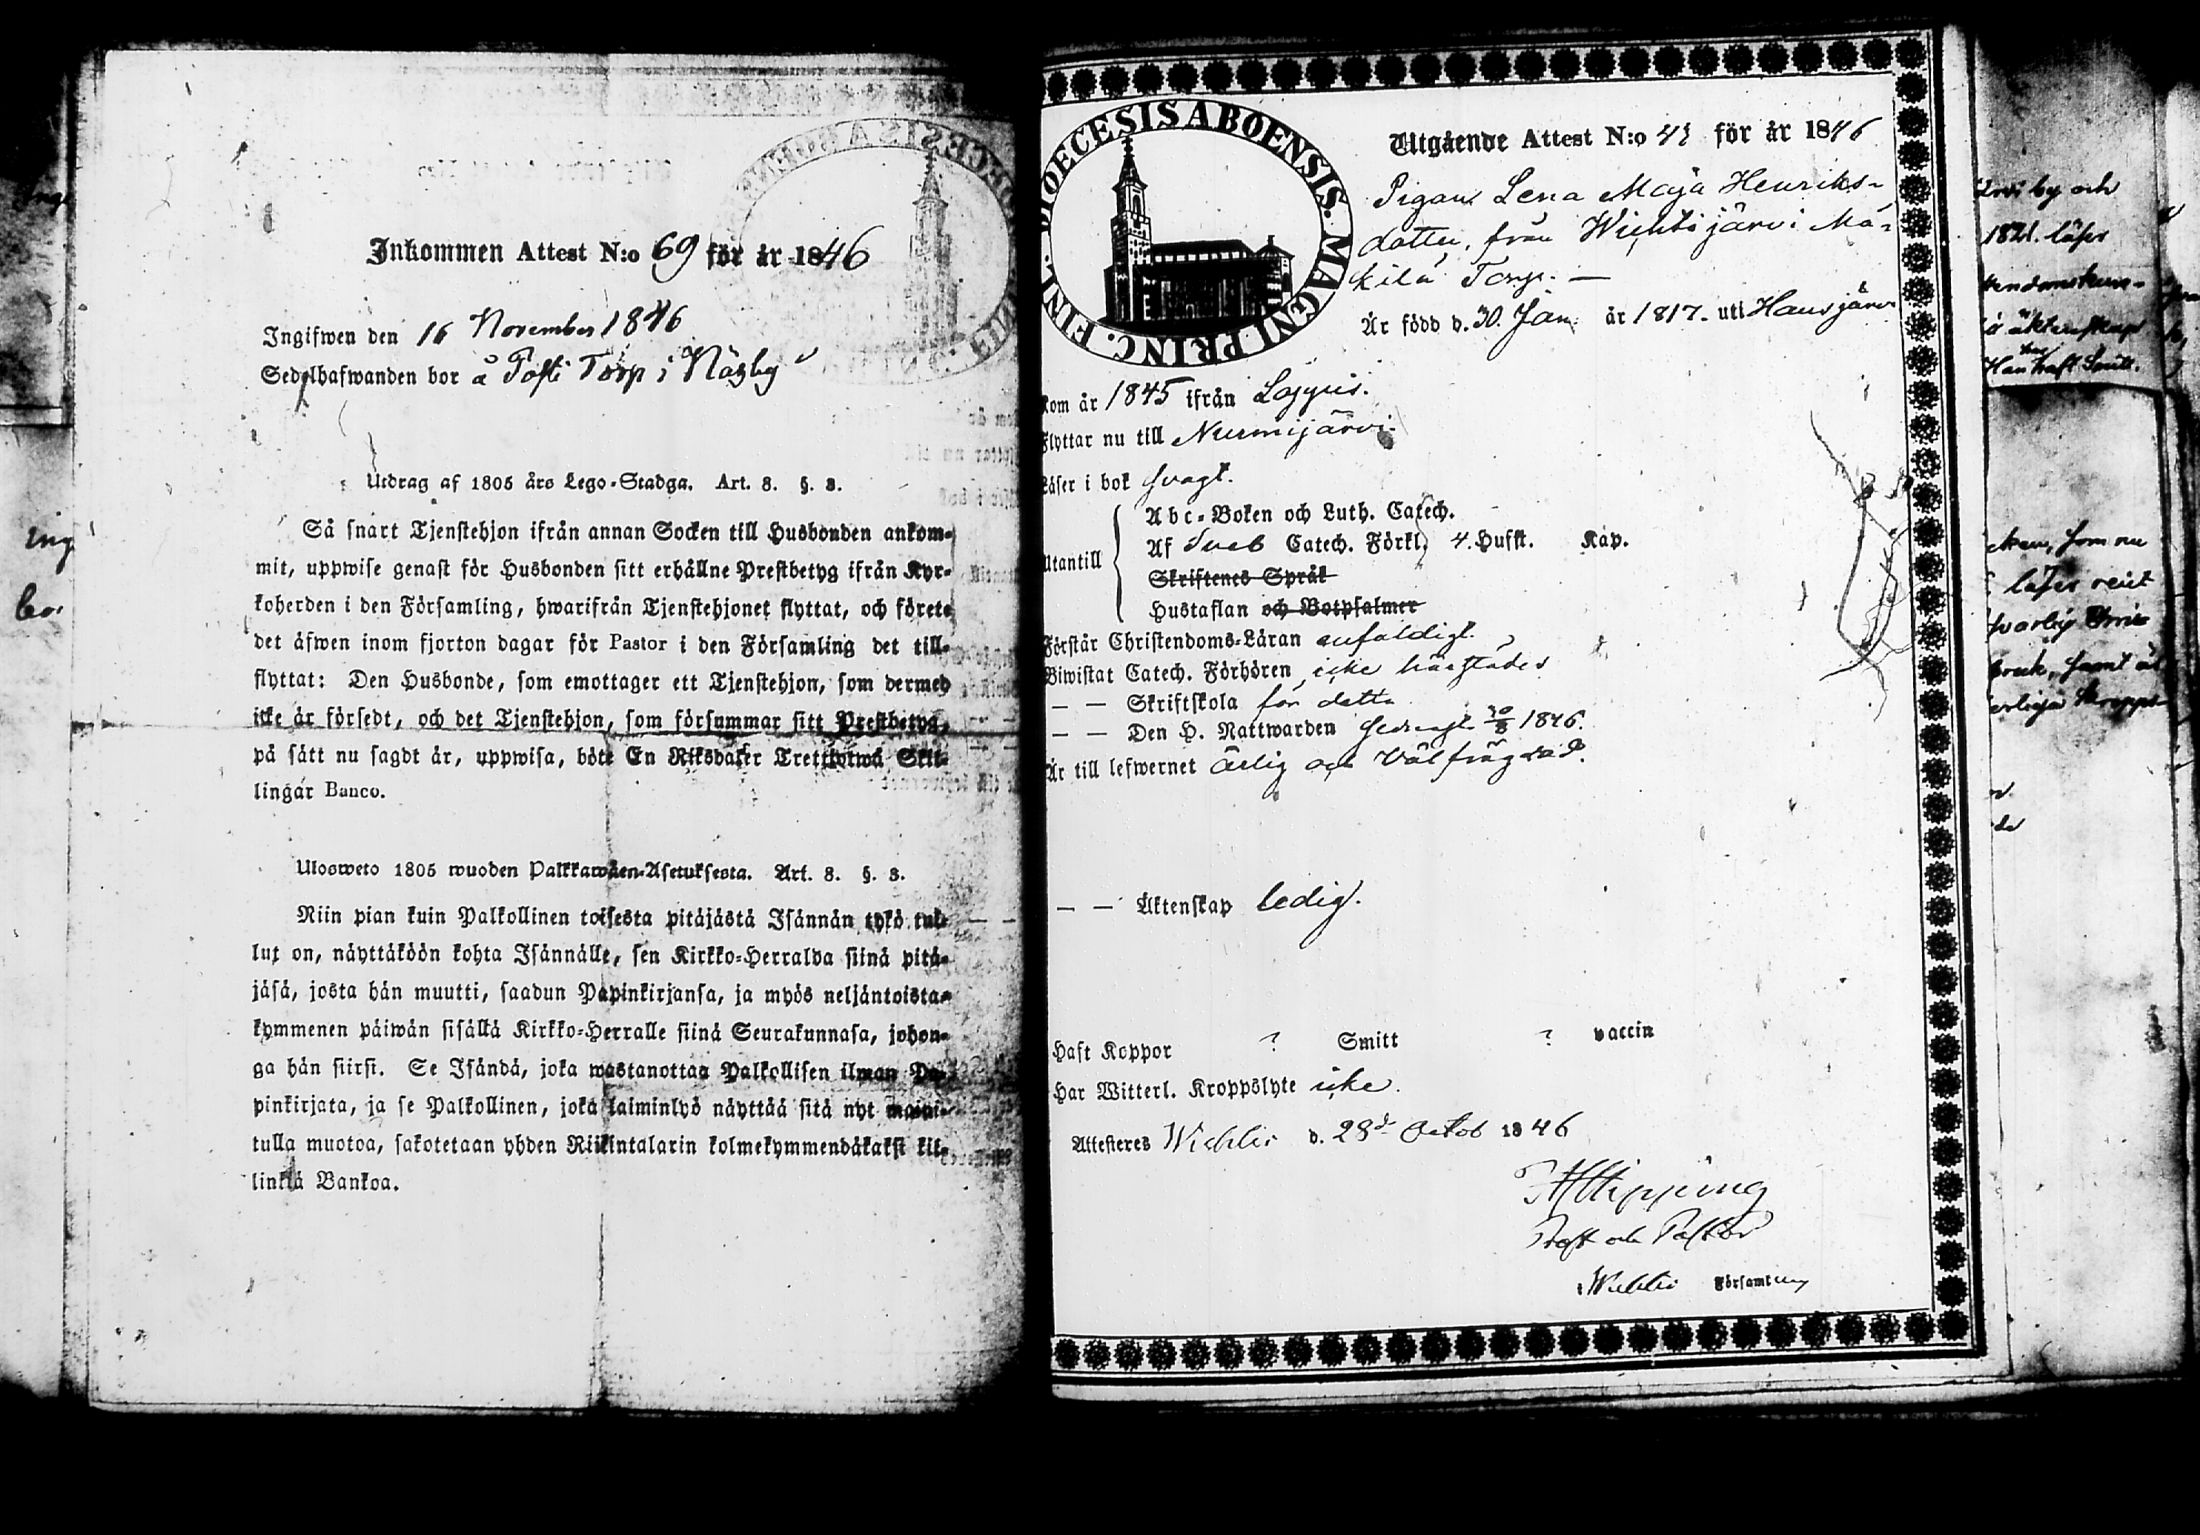 Inkommen Attest N:o 69 för år 1846
Ingifwen den 16 November 1846
Sedelhafwanden bor å Posti Torp i Näsby
Utdrag af 1805 års Lego-Stadga. Art. 8. §. 3.
Så snart Tjenstehjon ifrån annan Socken till Husbonden ankom-
mit, uppwise genast för Husbonden sitt erhållne Prestbetyg ifrån Kyr-
koherden i den Församling, hwarifrån Tjenstehjonet flyttat, och förete
det äfwen inom fjorton dagar för Pastor i den Församling det till-
flyttat: Den Husbonde, som emottager ett Tjenstehjon, som dermed
icke är försedt, och det Tjenstehjon, som försummar sitt Prestbetyg,
på sätt nu sagdt är, uppwisa, böte En Riksdaler Trettiotwå Skil-
lingar Banco.
Ulosweto 1805 wuoden Palkkawäen-Asetuksesta. Art. 8. §. 3.
Niin pian kuin Palkollinen toisesta pitäjästä Isännän tykö tul-
lut on, näyttäköön kohta Isännälle, sen Kirkko-Herralda siinä pitä-
jäsä, josta hän muutti, saadun Papinkirjansa, ja myös neljäntoista-
kymmenen päiwän sisällä Kirkko-Herralle siinä Seurakunnasa, johon-
ga hän siirsi. Se Isändä, joka wastanottaa Palkollisen ilman Pa-
pinkirjata, ja se Palkollinen, joka laiminlyö näyttää sitä nyt maini-
tulla muotoa, sakotetaan yhden Riikintalarin kolmekymmendäkaksi kil-
linkiä Bankoa.
DIOECESIS ABOENSIS. MAGNI PRINC. FINL.
Utgående Attest N:o 41 för år 1846
Pigan Lena Maja Henriks-
dotter, från Wichtijärvi Mä-
kilä Torp. —
Är född d. 30. Jan. år 1817. uti Hausjärvi
kom år 1845 ifrån Loppis.
Flyttar nu till Nurmijärvi.
Läser i bok svagt.
Utantill
Abc-Boken och Luth. Catech.
Af Sveb Catech. Förkl. 4. Hufst. Kap.
Skriftenes Språk
Hustaflan och Botpsalmer
Förstår Christendoms-Läran enfaldigt.
Biwistat Catech. Förhören icke härstädes
— — Skriftskola för detta
— — Den H. Nattwarden 30/8 1846.
Är till lefwernet Ärlig och Välfrägdad.
— — Äktenskap ledig.
Haft Koppor ? Smitt ? vaccin
Har Witterl. Kroppslyte icke.
Attesteres Wichtis d. 28d Octob 1846
Prost och Pastor
i Wichtis Församling